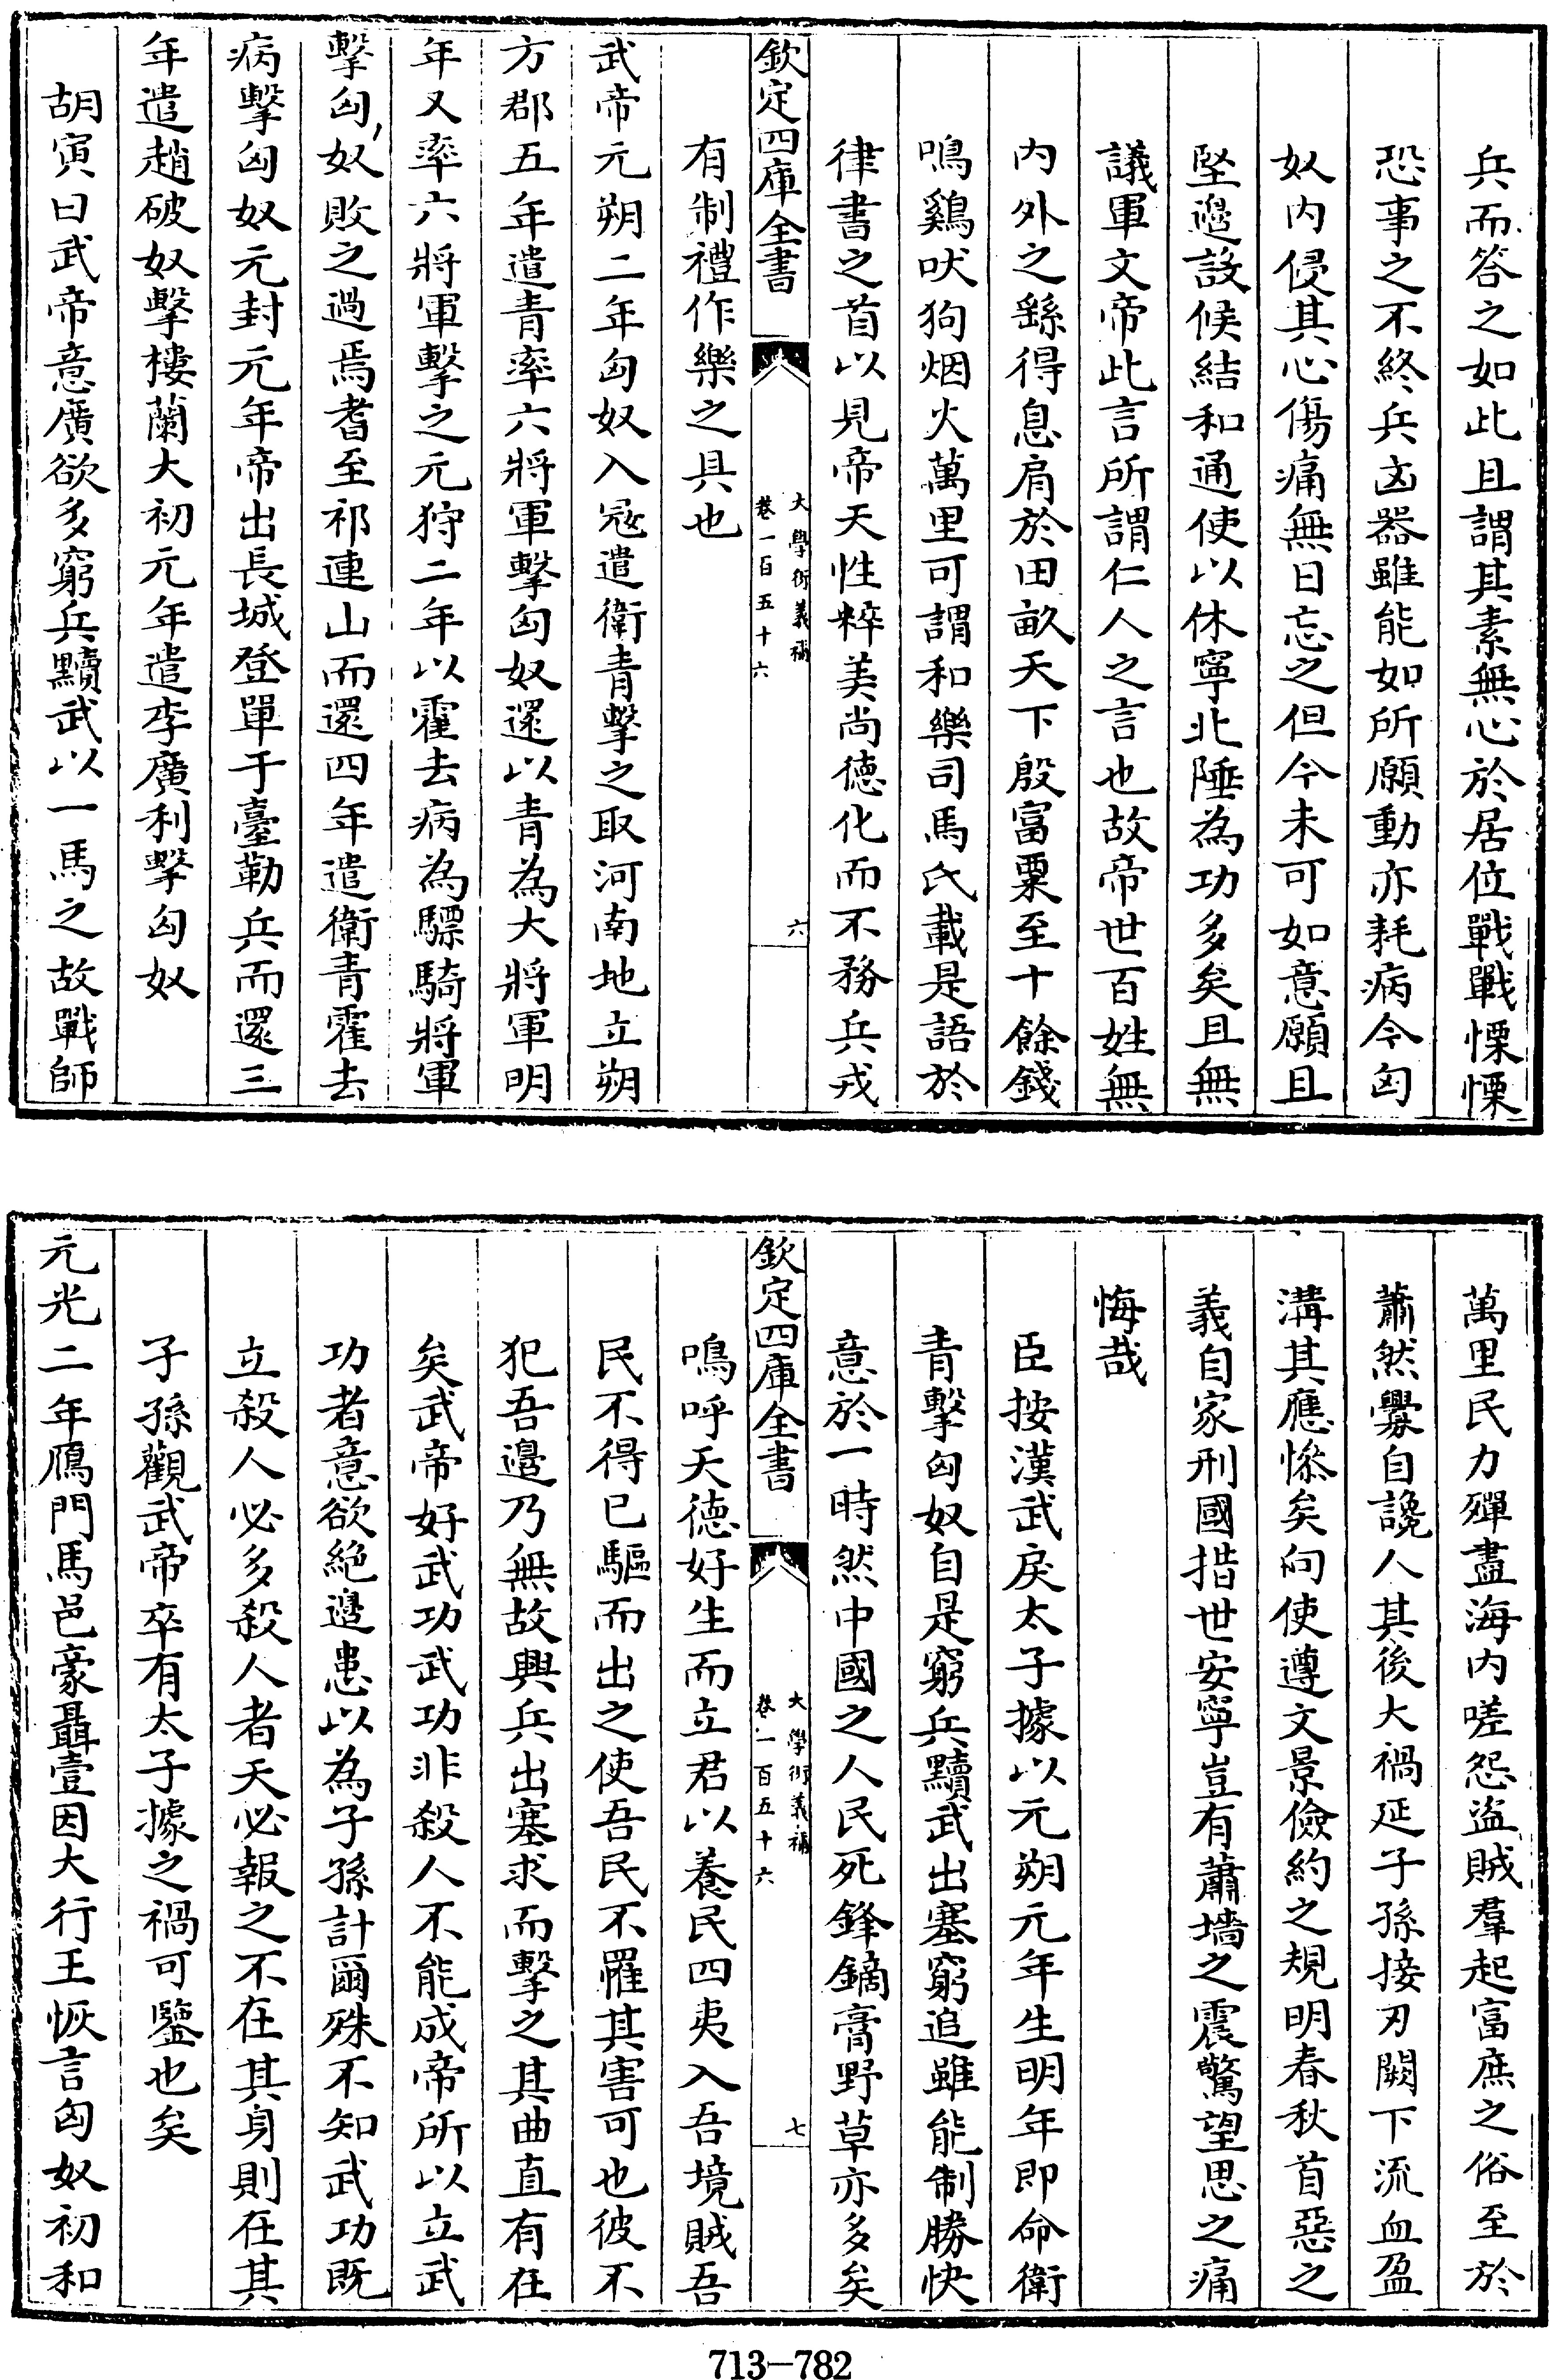 兵而答之如此且謂其素無心於居位戰戰慄慄
恐事之不終兵凶器雖能如所願動亦耗病今匈
奴内侵其心傷痛無日忘之但今未可如意願且
堅邊設候結和通使以休寧北陲為功多矣且無
議軍文帝此言所謂仁人之言也故帝世百姓無
内外之繇得息肩於田畝天下殷富粟至十餘錢
鳴鷄吠狗烟火萬里可謂和樂司馬氏載是語於
律書之首以見帝天性粹美尚德化而不務兵戎
欽定四庫全書
大學衍義補
卷一百五十六
六
有制禮作樂之具也
武帝元朔二年匈奴入寇遣衛青擊之取河南地立朔
方郡五年遣青率六將軍擊匈奴還以青為大將軍明
年又率六將軍擊之元狩二年以霍去病為驃騎將軍
擊匈奴敗之過焉耆至祁連山而還四年遣衛青霍去
病擊匈奴元封元年帝出長城登單于臺勒兵而還三
年遣趙破奴擊樓蘭大初元年遣李廣利擊匈奴
胡寅曰武帝意廣欲多窮兵黷武以一馬之故戰師
萬里民力殫盡海内嗟怨盜賊羣起富庶之俗至於
蕭然釁自讒人其後大禍延子孫接刃闕下流血盈
溝其應慘矣向使遵文景儉約之規明春秋首惡之
義自家刑國措世安寧豈有蕭墻之震驚望思之痛
悔哉
臣按漢武戾太子據以元朔元年生明年即命衛
青擊匈奴自是窮兵黷武出塞窮追雖能制勝快
意於一時然中國之人民死鋒鏑膏野草亦多矣
欽定四庫全書
大學衍義補
卷一百五十六
七
鳴呼天德好生而立君以養民四夷入吾境賊吾
民不得已驅而出之使吾民不罹其害可也彼不
犯吾邊乃無故興兵出塞求而擊之其曲直有在
矣武帝好武功武功非殺人不能成帝所以立武
功者意欲絶邊患以為子孫計爾殊不知武功既
立殺人必多殺人者天必報之不在其身則在其
子孫觀武帝卒有太子據之禍可鑒也矣
元光二年鴈門馬邑豪聶壹因大行王恢言匈奴初和
713-782